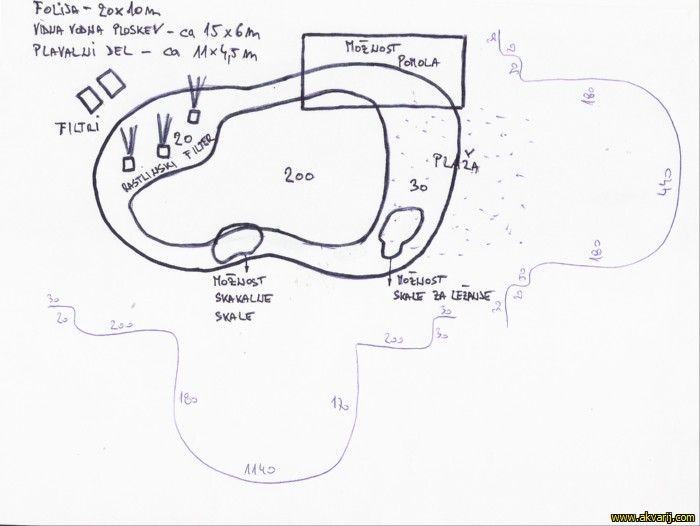 FOLIJA - 20x10m
VIDNA VODNA PLOSKEV - ca 15x6m
PLAVALNI DEL - ca 11x4,5m
MOŽNOST
POMOLA
FILTRI
20
RASTLINSKI FILTER
200
30
PLAŽA
MOŽNOST
SKAKALNE
SKALE
MOŽNOST
SKALE ZA LEŽANJE
30
20
30
180
440
180
30
20
30
30
20
200
180
1140
170
200
30
30
www.akvarij.com